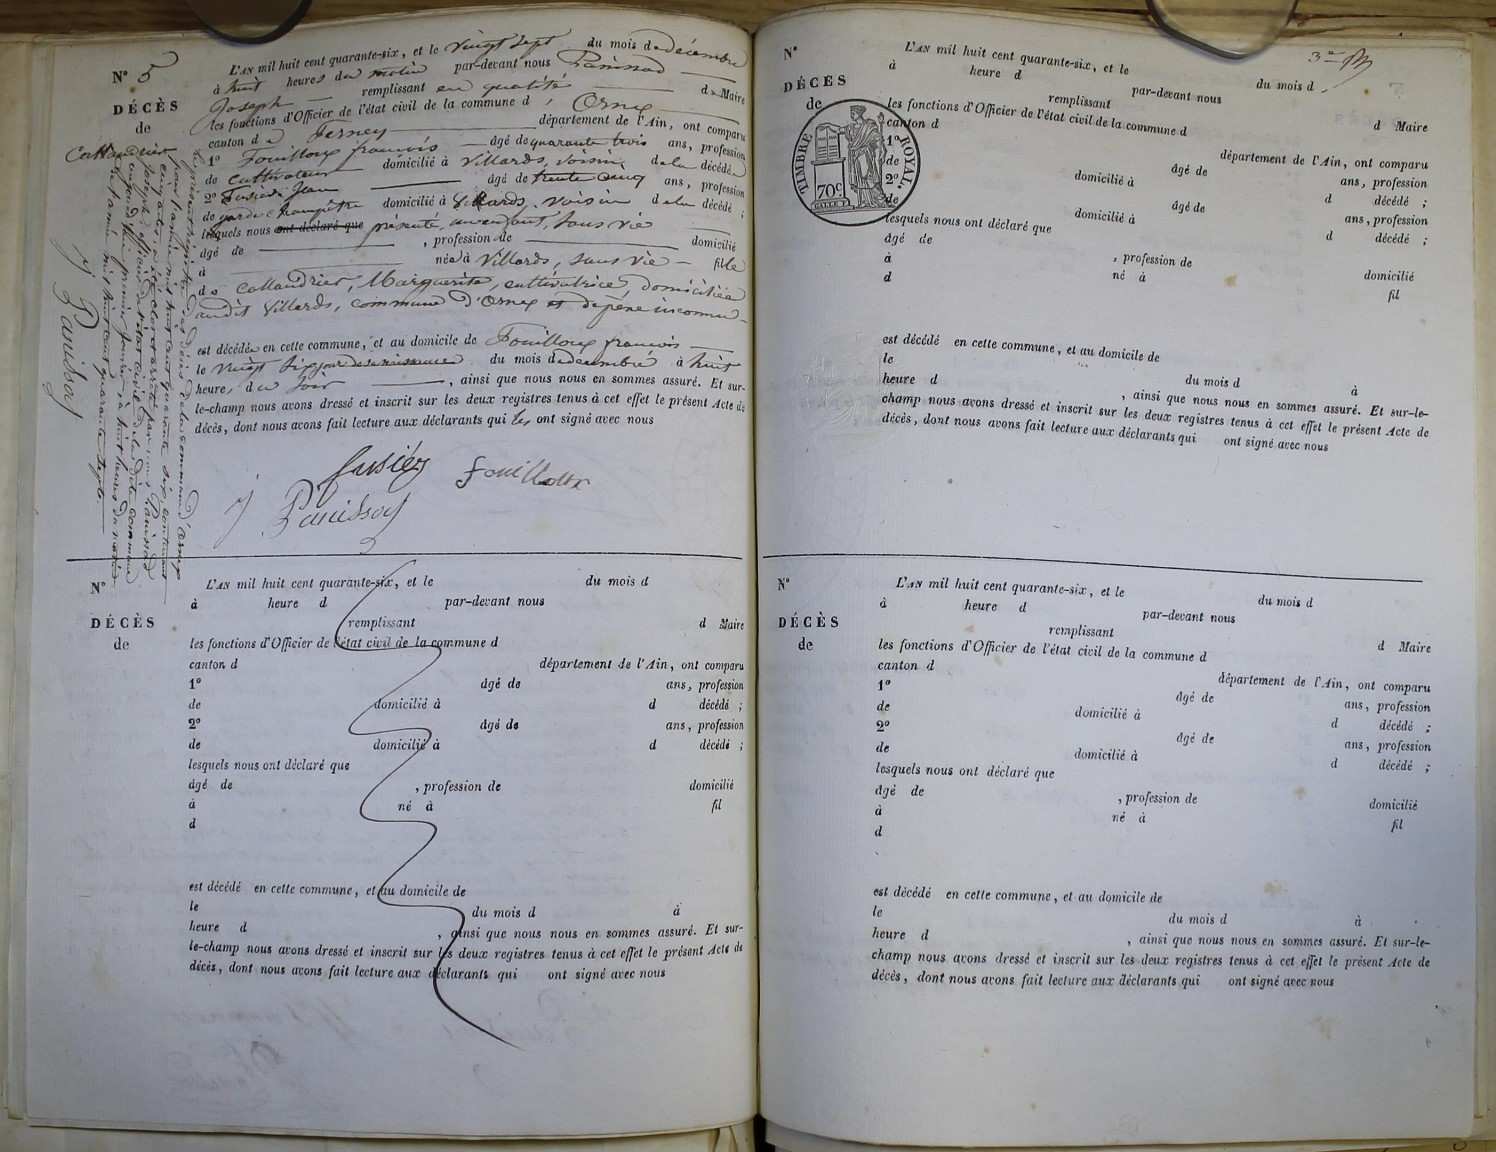 N° 5
DÉCÈS
de
Callandrier
L'AN mil huit cent quarante-six, et le vingt sept du mois de décembre
à huit heures du matin par-devant nous Panissod
Joseph remplissant en qualité de Maire
les fonctions d'Officier de l'état civil de la commune d'Ornex
canton de Ferney département de l'Ain, ont comparu
1° Fouilloux françois âgé de quarante trois ans, profession
de cultivateur domicilié à Villards, voisin de la décédée
2° Fusier Jean âgé de trente cinq ans, profession
de garde champêtre domicilié à Villards, voisin de la décédé ;
lesquels nous ont déclaré que présenté, un enfant, sans vie
âgé de , profession de domicilié
à née à Villards, sans vie fille
de Callandrier, Marguerite, cultivatrice, domiciliée
audit Villards, commune d'Ornex et de père inconnu
est décédée en cette commune, et au domicile de Fouilloux françois
le vingt six jour de sa naissance du mois de décembre à huit
heures du soir , ainsi que nous nous en sommes assuré. Et sur-
le-champ nous avons dressé et inscrit sur les deux registres tenus à cet effet le présent Acte de
décès, dont nous avons fait lecture aux déclarants qui les ont signé avec nous
fusier fouilloux
J Panissod
Le présent registre des décès de la commune d'Ornex
pour l'année mil huit cent quarante six, contenant
cinq actes, a été clos et arrêté par nous Panissod
Joseph, officier de l'état civil de la dite commune
aujourd'hui premier janvier à huit heures du matin
de l'année mil huit cent quarante sept
J Panissod
N°
DÉCÈS
de
L'AN mil huit cent quarante-six, et le du mois d
à heure d par-devant nous
remplissant d Maire
les fonctions d'Officier de l'état civil de la commune d
canton d département de l'Ain, ont comparu
1° âgé de ans, profession
de domicilié à d décédé ;
2° âgé de ans, profession
de domicilié à d décédé ;
lesquels nous ont déclaré que
âgé de , profession de domicilié
à né à fil
d
est décédé en cette commune, et au domicile de
le du mois d à
heure d , ainsi que nous nous en sommes assuré. Et sur-
le-champ nous avons dressé et inscrit sur les deux registres tenus à cet effet le présent Acte de
décès, dont nous avons fait lecture aux déclarants qui ont signé avec nous
N°
DÉCÈS
de
TIMBRE ROYAL
70c
L'AN mil huit cent quarante-six, et le du mois d
à heure d par-devant nous
remplissant d Maire
les fonctions d'Officier de l'état civil de la commune d
canton d département de l'Ain, ont comparu
1° âgé de ans, profession
de domicilié à d décédé ;
2° âgé de ans, profession
de domicilié à d décédé ;
lesquels nous ont déclaré que
âgé de , profession de domicilié
à né à fil
d
est décédé en cette commune, et au domicile de
le du mois d à
heure d , ainsi que nous nous en sommes assuré. Et sur-le-
champ nous avons dressé et inscrit sur les deux registres tenus à cet effet le présent Acte de
décès, dont nous avons fait lecture aux déclarants qui ont signé avec nous
N°
DÉCÈS
de
L'AN mil huit cent quarante-six, et le du mois d
à heure d par-devant nous
remplissant d Maire
les fonctions d'Officier de l'état civil de la commune d
canton d département de l'Ain, ont comparu
1° âgé de ans, profession
de domicilié à d décédé ;
2° âgé de ans, profession
de domicilié à d décédé ;
lesquels nous ont déclaré que
âgé de , profession de domicilié
à né à fil
d
est décédé en cette commune, et au domicile de
le du mois d à
heure d , ainsi que nous nous en sommes assuré. Et sur-le-
champ nous avons dressé et inscrit sur les deux registres tenus à cet effet le présent Acte de
décès, dont nous avons fait lecture aux déclarants qui ont signé avec nous